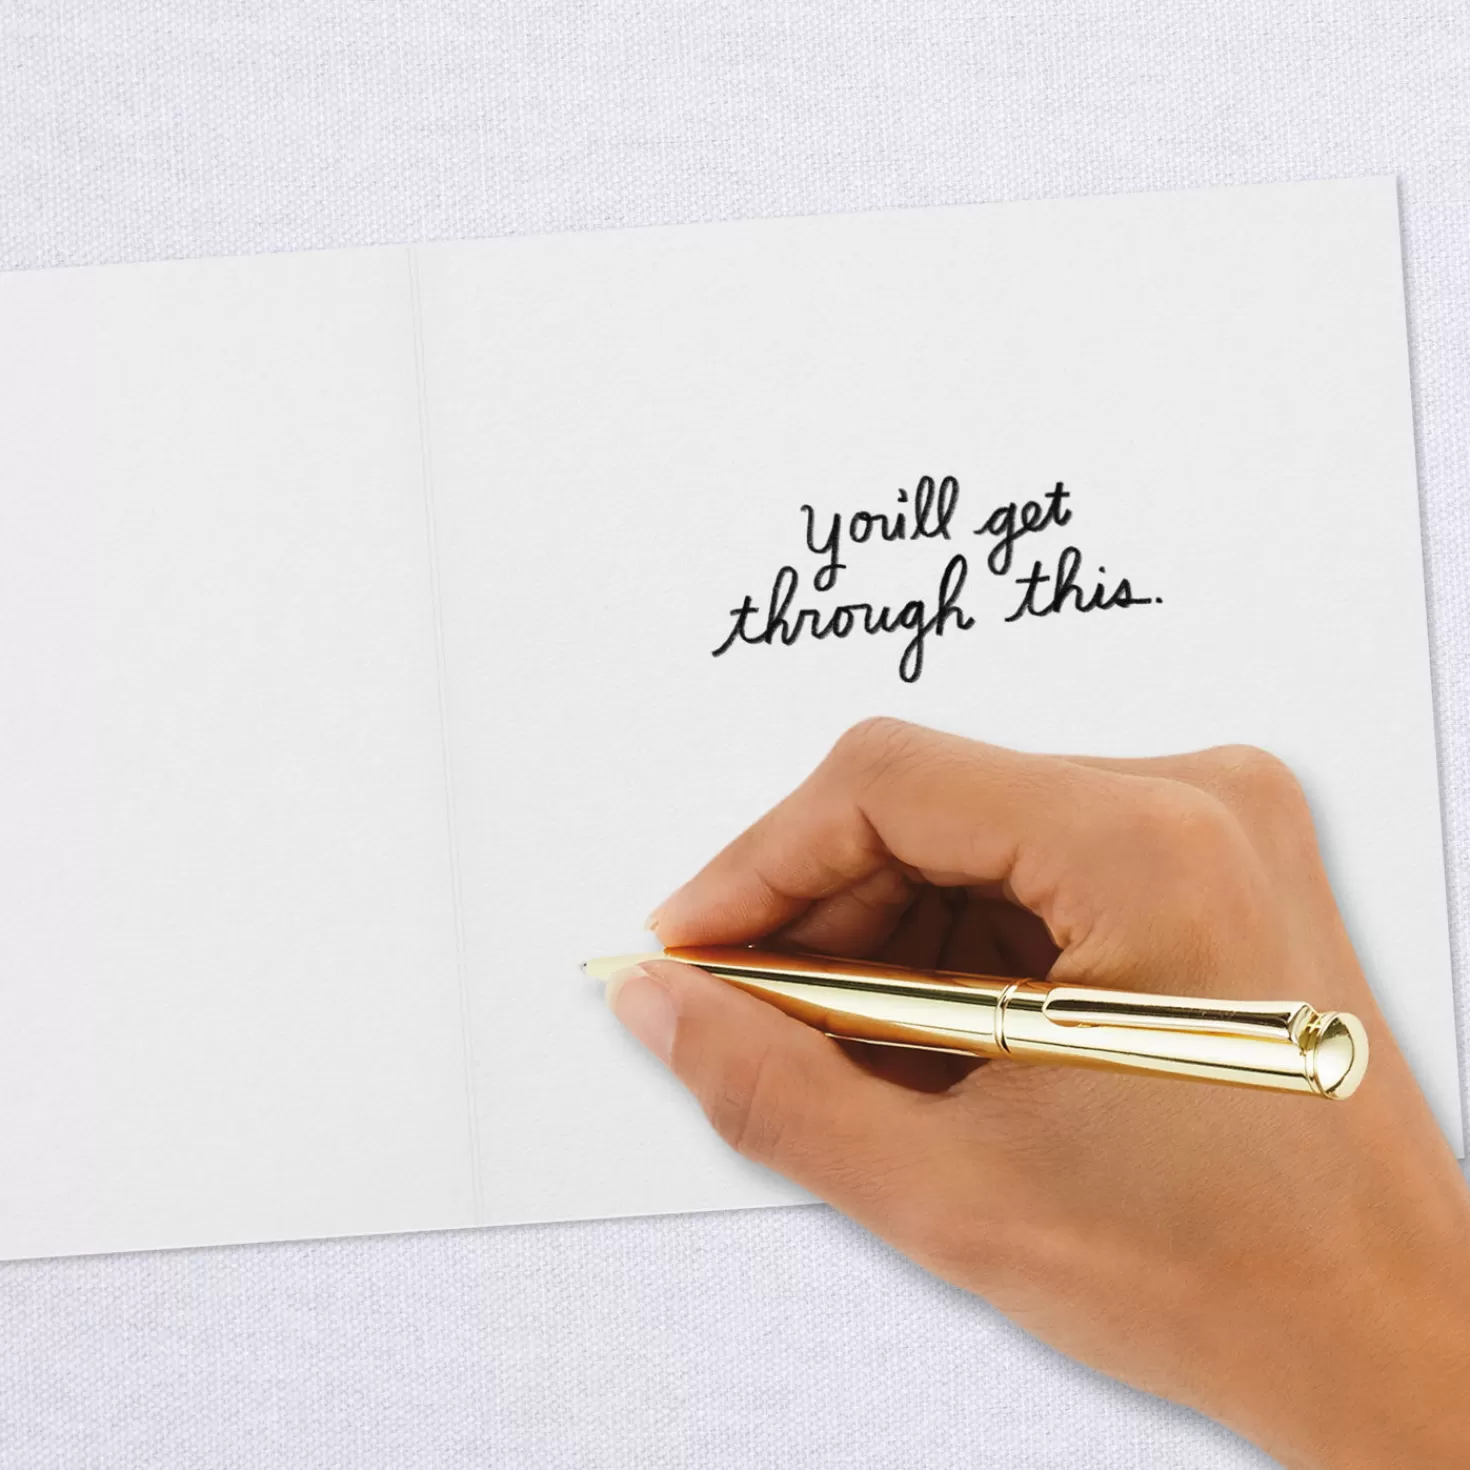 You'll get
through this.